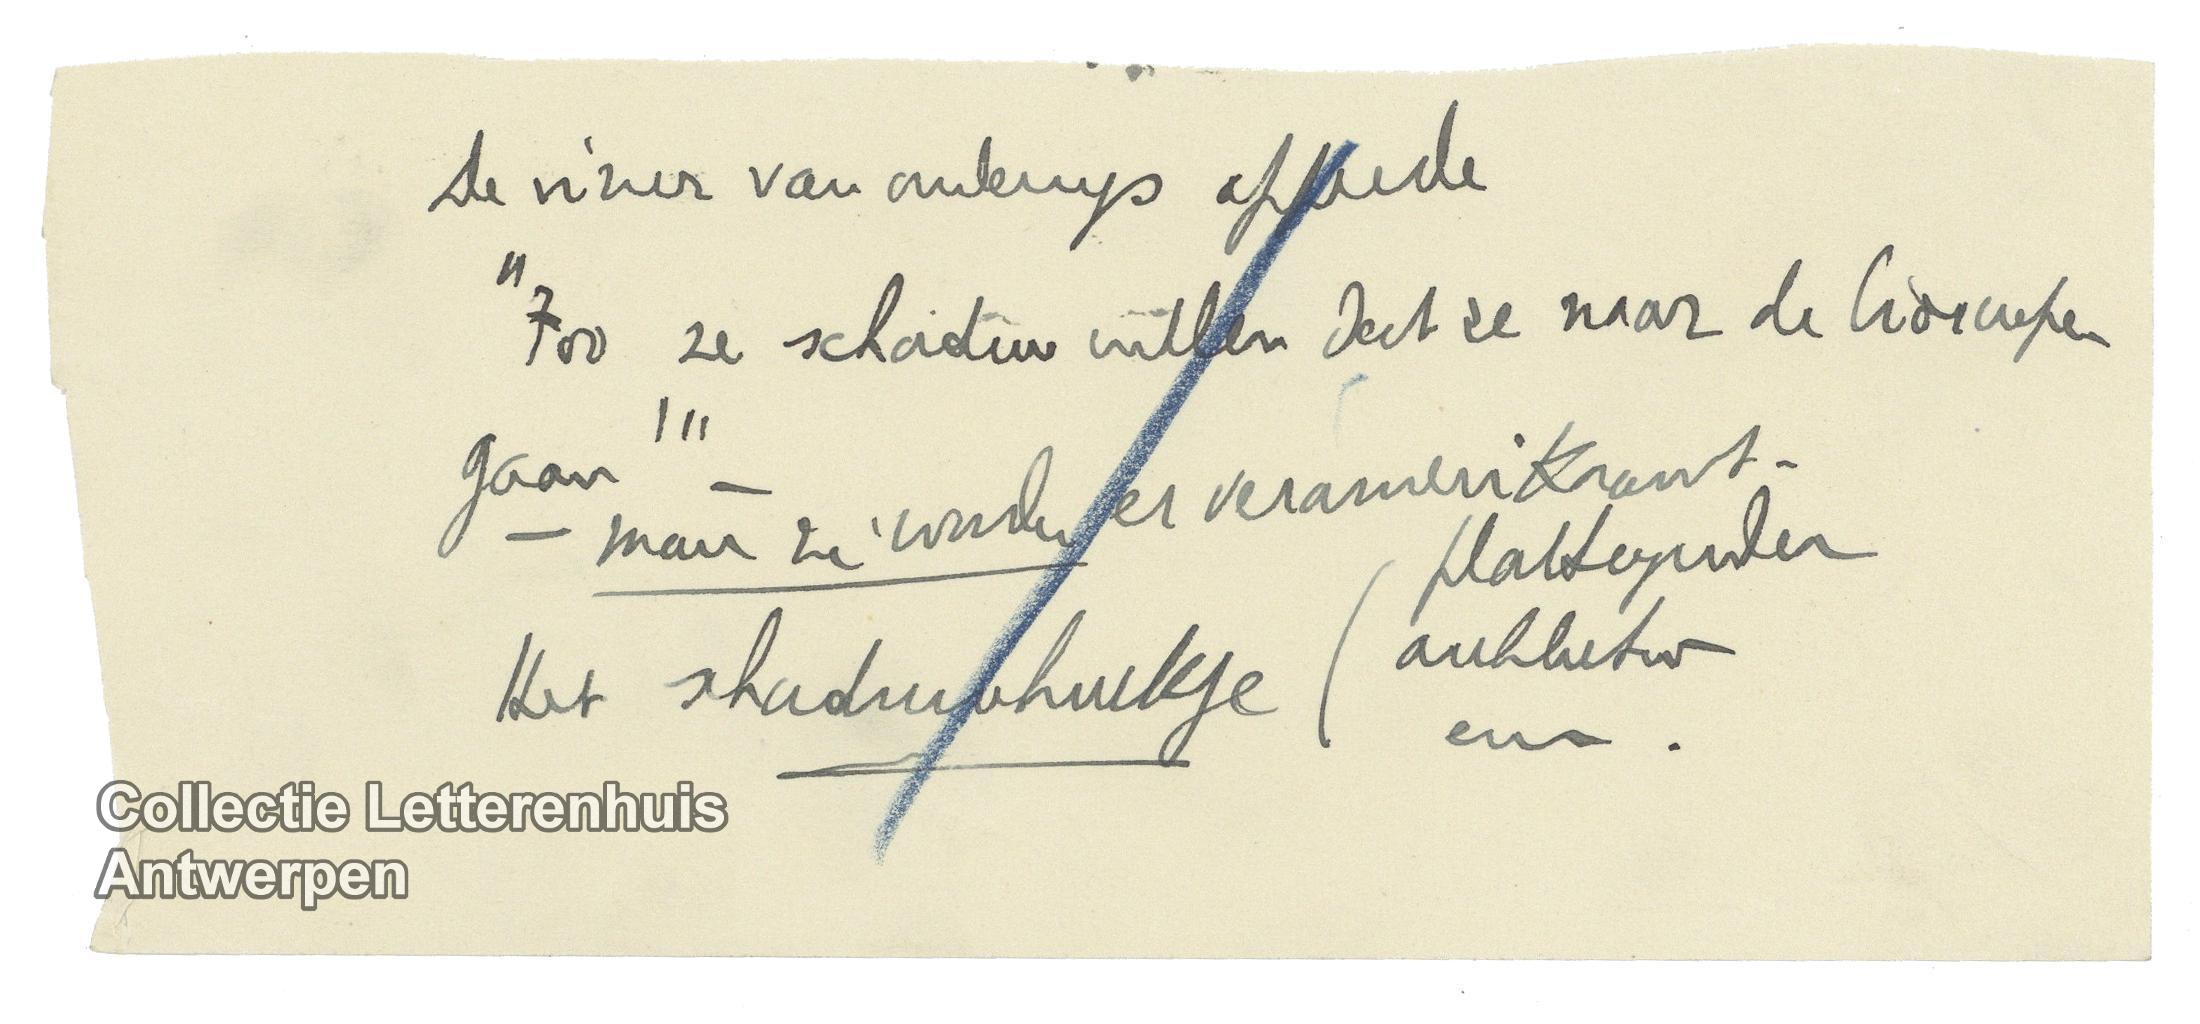 De vizier van onderwijs
"Zoo ze schaduw willen dat ze naar de bioscopen
gaan !!! —
— maar ze worden er veramerikaanst -
Het schaduwhoekje ( plattegronden
architectuur
enz.
Collectie Letterenhuis
Antwerpen